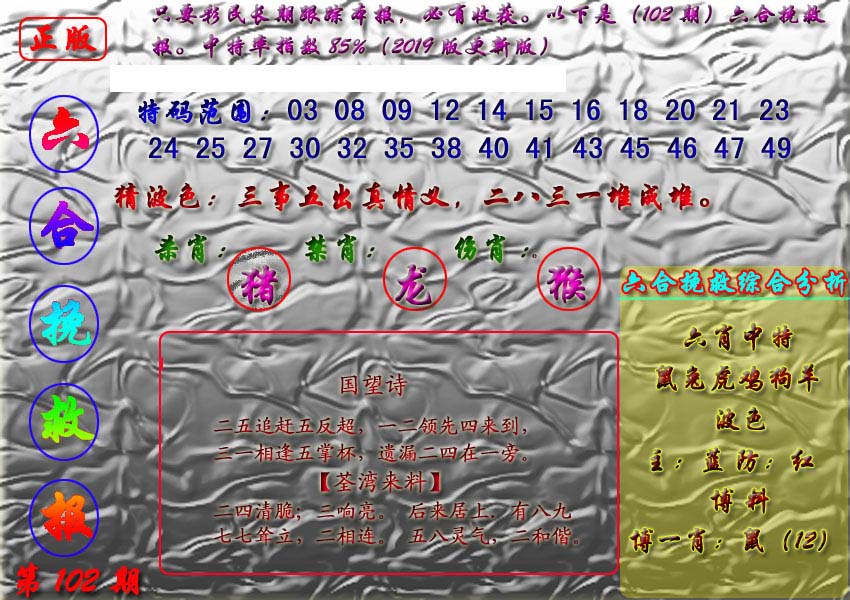 正版
只要彩民长期跟踪本报，必有收获。以下是（102期）六合挽救
报。中特率指数85%（2019版更新版）
六
合
挽
救
报
第102期
特码范围：03 08 09 12 14 15 16 18 20 21 23
24 25 27 30 32 35 38 40 41 43 45 46 47 49
猜波色：三事五出真情义，二八三一堆成堆。
杀肖： 禁肖： 伤肖：。
猪 龙 猴
国望诗
二五追赶五反超，一二领先四来到，
三一相逢五掌杯，遗漏二四在一旁。
【荃湾来料】
二四清脆；三响亮。 后来居上．有八九
七七耸立，二相连。 五八灵气，二和偕。
六合挽救综合分析
六肖中特
鼠兔虎鸡狗羊
波色
主：蓝防：红
博料
博一肖：鼠（12）